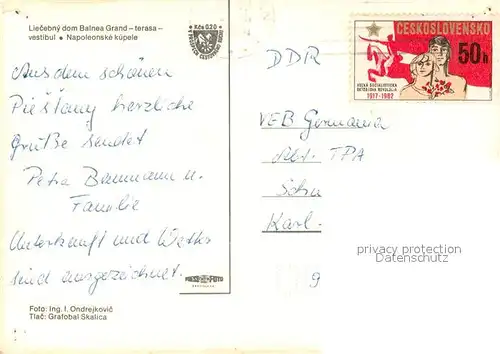 Liečebný dom Balnea Grand – terasa –
vestibul • Napoleonské kúpele
Kčs 0,20
ČESKOSLOVENSKO
50h
VEĽKÁ SOCIALISTICKÁ
OKTÓBROVÁ REVOLÚCIA
1917-1982
DDR
Aus dem schönen
Piešťany herzliche
Grüße sendet
Petra Baumann u.
Familie
Unterkunft und Wetter
sind ausgezeichnet.
VEB Germania
Abt. TPA
Karl-
9
privacy protection
Datenschutz
PRESSFOTO
Foto: Ing. I. Ondrejkovič
Tlač: Grafobal Skalica